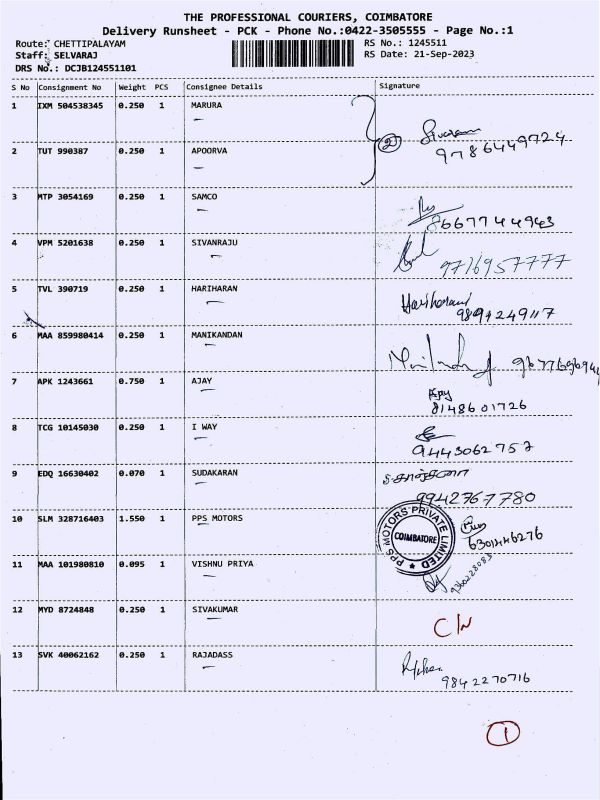 THE PROFESSIONAL COURIERS, COIMBATORE
Delivery Runsheet - PCK - Phone No.:0422-3505555 - Page No.:1
Route: CHETTIPALAYAM RS No.: 1245511
Staff: SELVARAJ RS Date: 21-Sep-2023
DRS No.: DCJB124551101
S No Consignment No Weight PCS Consignee Details Signature
1 IXM 504538345 0.250 1 MARURA
2 9786449724
2 TUT 990387 0.250 1 APOORVA
3 MTP 3054169 0.250 1 SAMCO
8667744943
4 VPM 5201638 0.250 1 SIVANRAJU
9716957777
5 TVL 390719 0.250 1 HARIHARAN
Hariharan
6 MAA 859980414 0.250 1 MANIKANDAN
7 APK 1243661 0.750 1 AJAY
Ajay
8148601726
8 TCG 10145030 0.250 1 I WAY
9443062757
9 EDQ 16630402 0.070 1 SUDAKARAN
9942767780
10 SLM 328716403 1.550 1 PPS MOTORS
PPS MOTORS PRIVATE LIMITED
COIMBATORE
6301446276
11 MAA 101980810 0.095 1 VISHNU PRIYA
9360228083
12 MYD 8724848 0.250 1 SIVAKUMAR
C/N
13 SVK 40062162 0.250 1 RAJADASS
9842270716
1